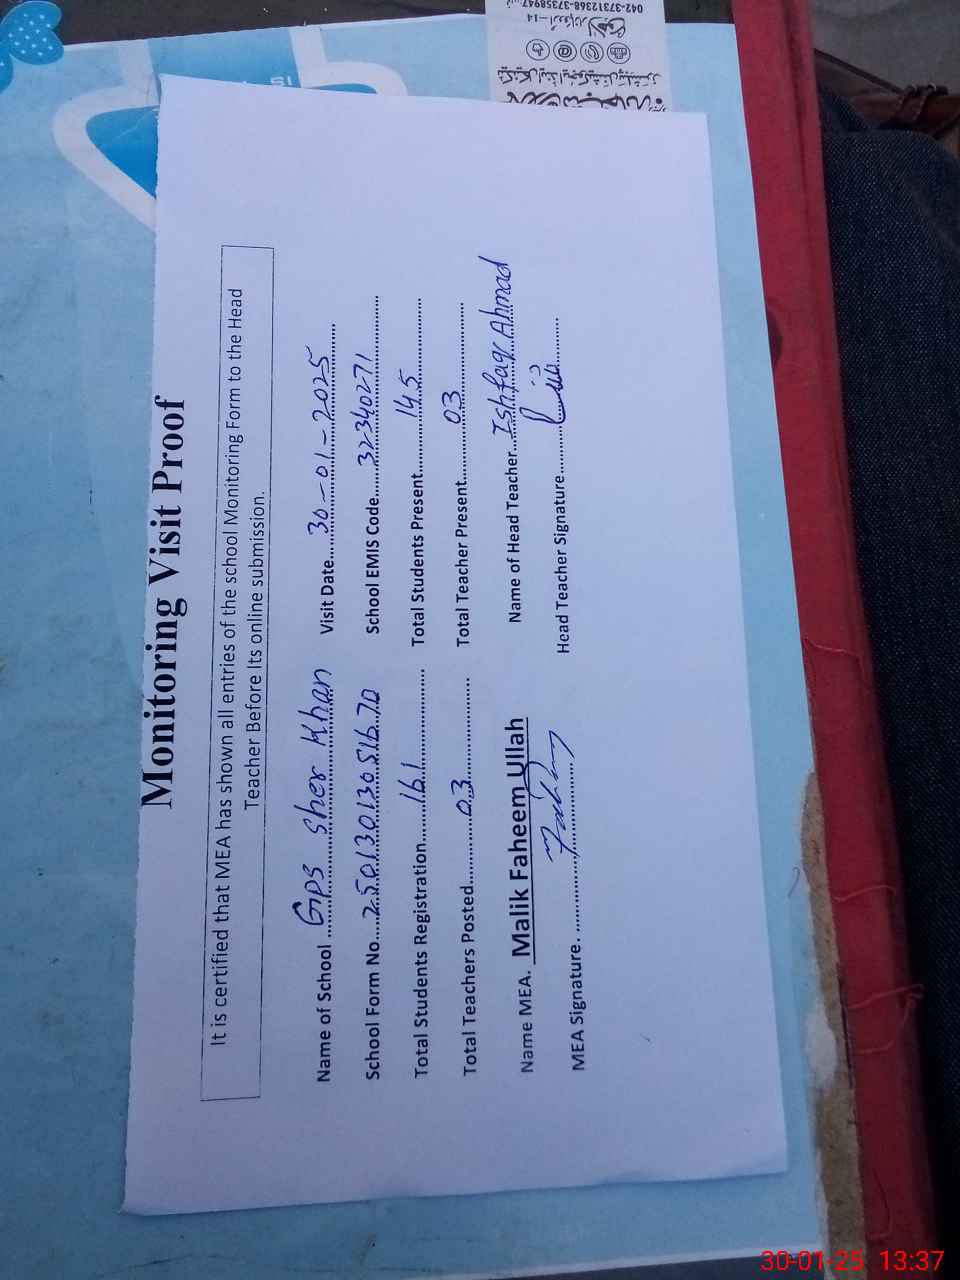 Monitoring Visit Proof
It is certified that MEA has shown all entries of the school Monitoring Form to the Head
Teacher Before Its online submission.
Name of School ....Gps Sher Khan Visit Date.....30-01-2025.....
School Form No....25013013051670 School EMIS Code.....32340271.....
Total Students Registration.....161..... Total Students Present.....145.....
Total Teachers Posted.....03..... Total Teacher Present.....03.....
Name MEA. Malik Faheem Ullah Name of Head Teacher...Ishfaq Ahmad
MEA Signature. ..... Head Teacher Signature.....
042-37312368-37358947
30-01-25 13:37